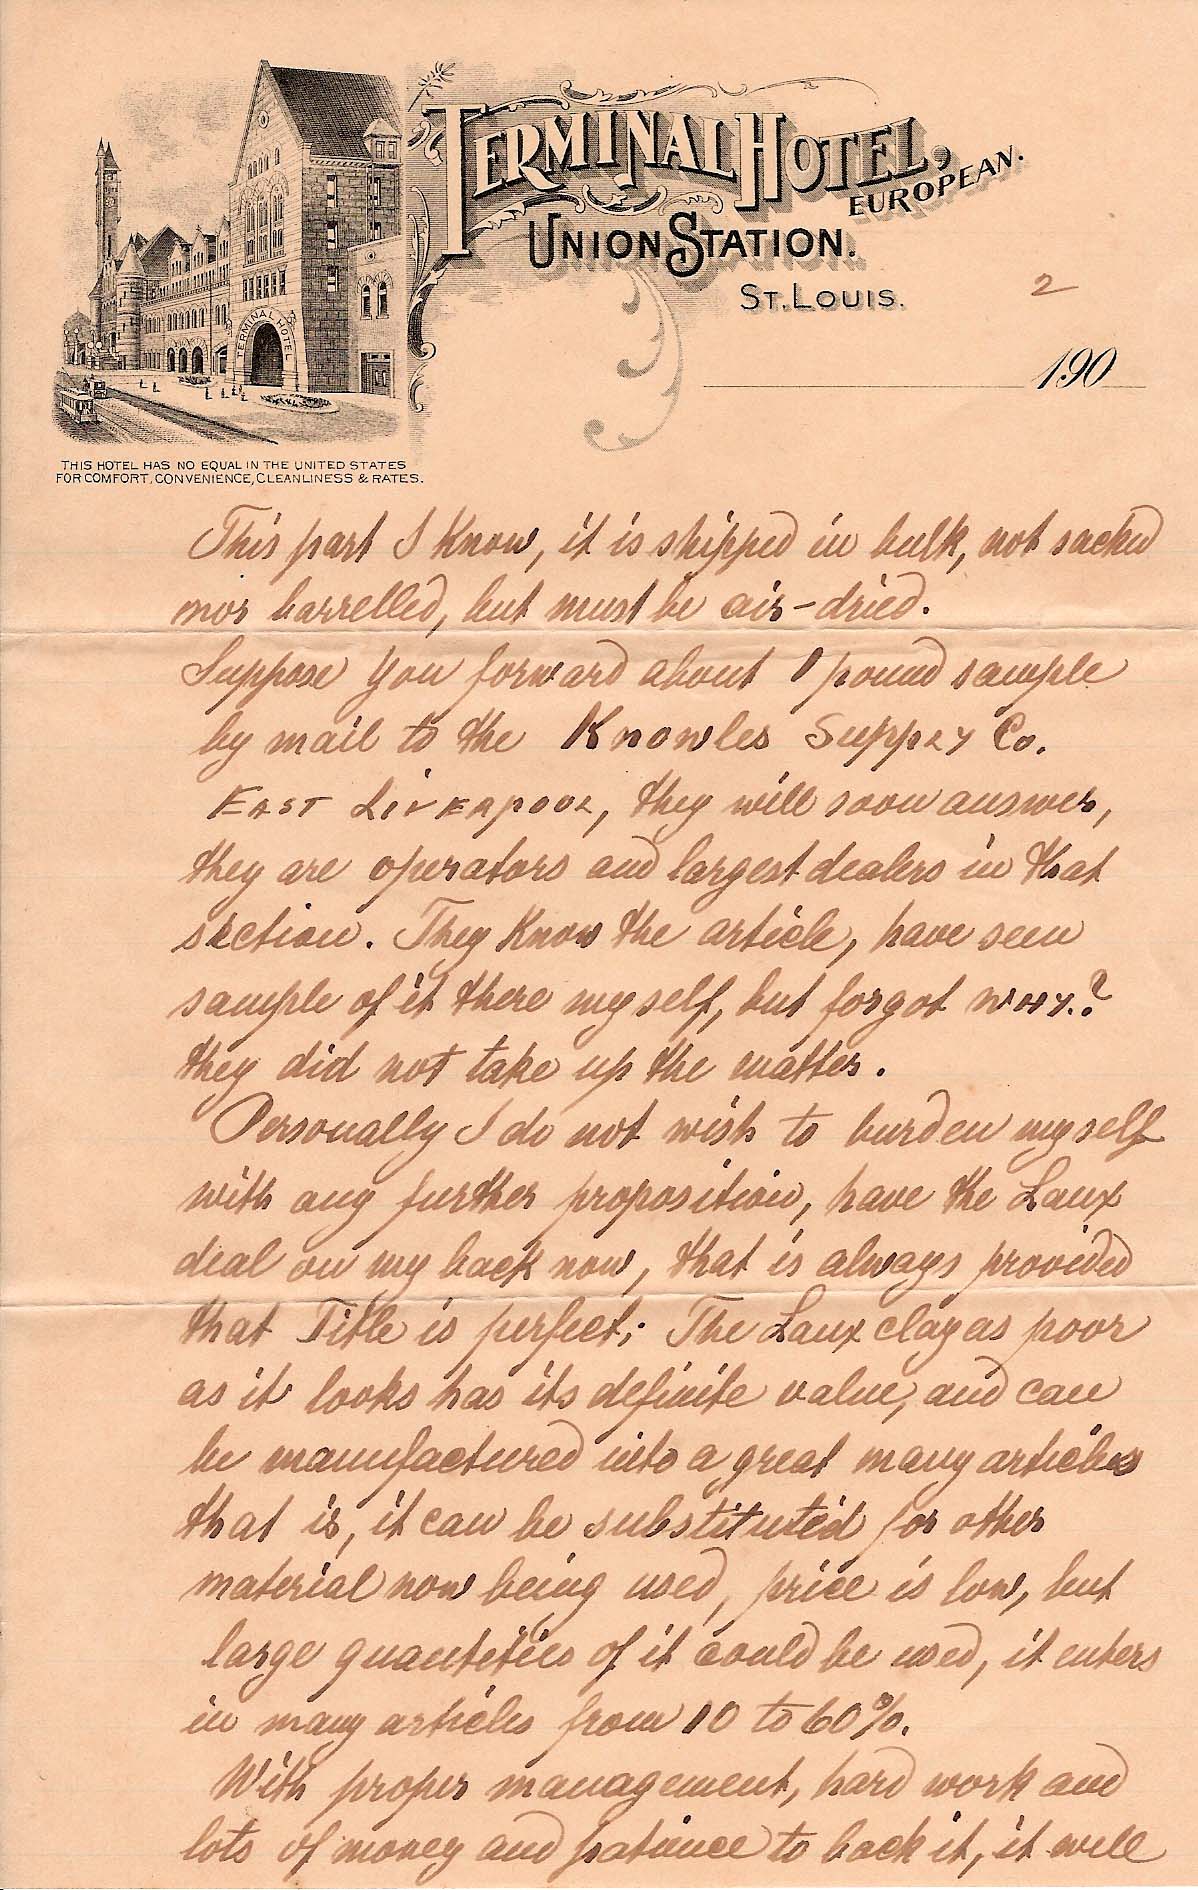 TERMINAL HOTEL,
EUROPEAN.
UNION STATION.
ST. LOUIS.
2
190
TERMINAL HOTEL
THIS HOTEL HAS NO EQUAL IN THE UNITED STATES
FOR COMFORT, CONVENIENCE, CLEANLINESS & RATES.
This part I Know, it is shipped in bulk, not sacked
nor barrelled, but must be air-dried.
Suppose You forward about 1 pound sample
by mail to the Knowles Supply Co.
East Liverpool, they will soon answer,
they are operators and largest dealers in that
section. They Know the article, have seen
sample of it there myself, but forgot WHY.?
they did not take up the matter.
Personally I do not wish to burden myself
with any further proposition, have the Laux
deal on my back now, that is always provided
that Title is perfect; The Laux clay as poor
as it looks has its definite value, and can
be manufactured into a great many articles
that is, it can be substituted for other
material now being used, price is low, but
large quantities of it could be used, it enters
in many articles from 10 to 60%.
With proper management, hard work and
lots of money and patience to back it, it will